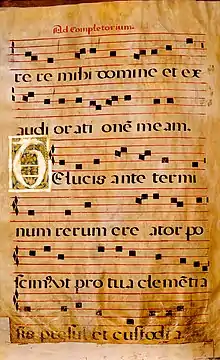 Ad Completorium.
re re mihi domine et ex
audi orati onē meam.
TE lucis ante termi
num rerum cre ator po
scimꝰ vt pro tua clemētia
sis presul et custodia